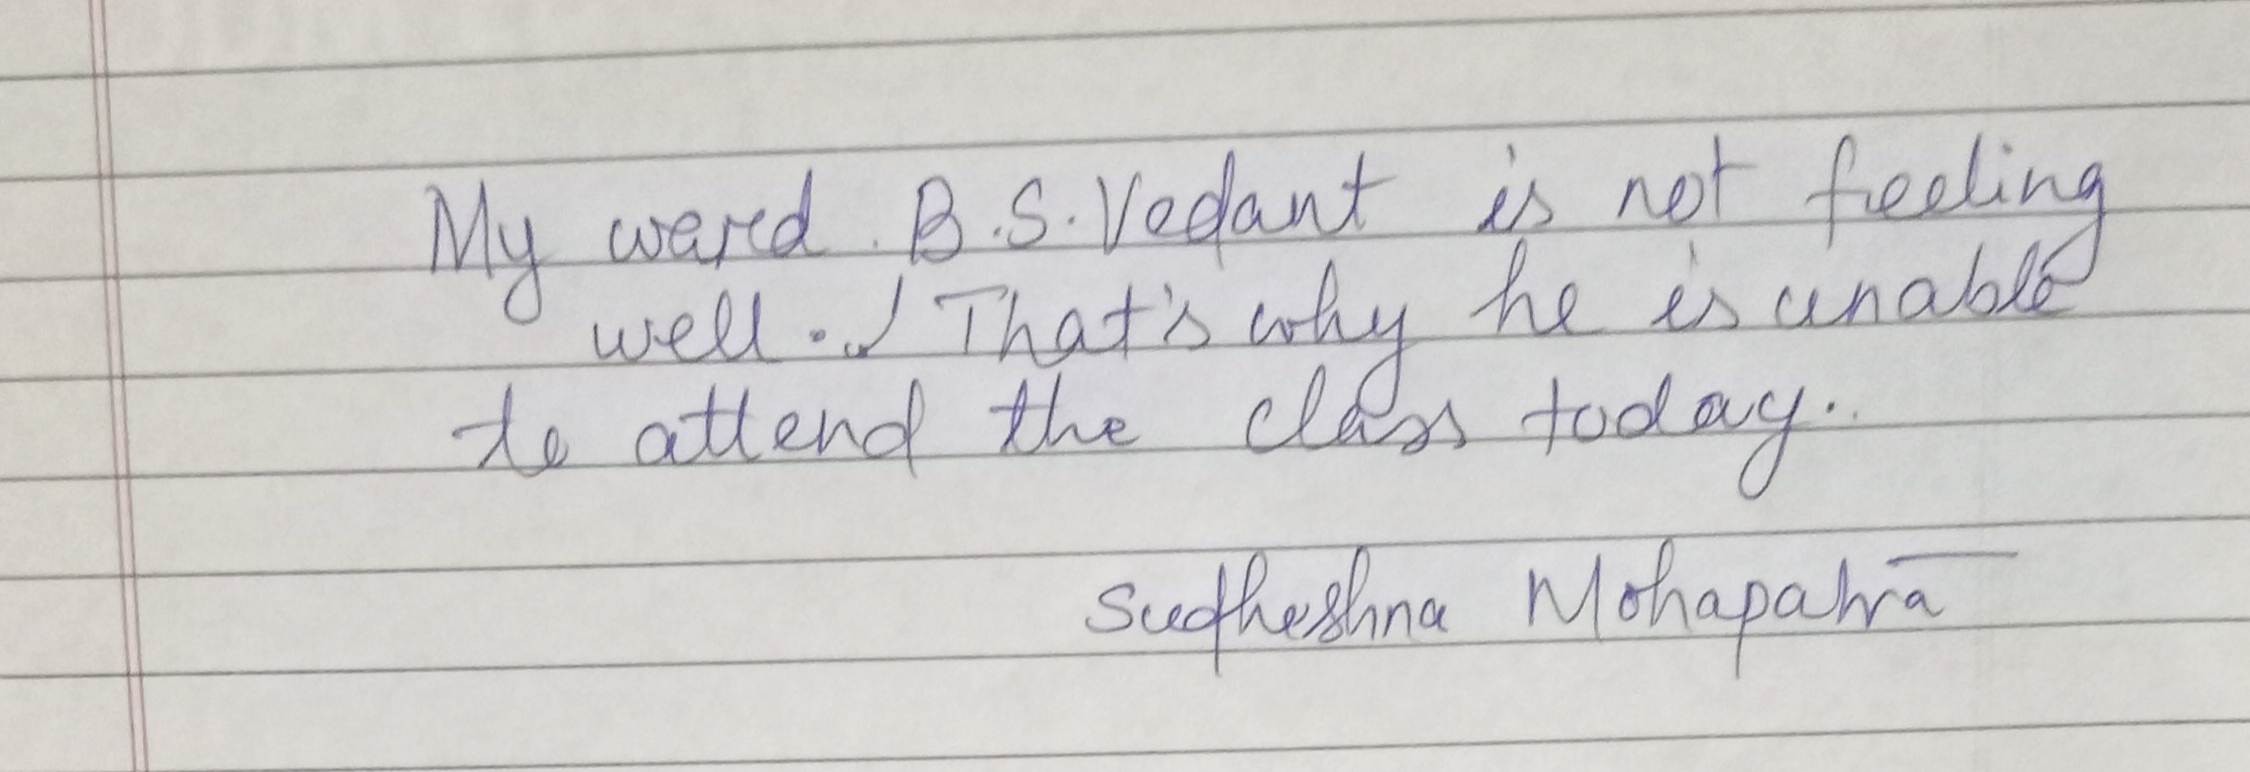 My ward. B.S. Vedant is not feeling
well. That's why he is unable
to attend the class today..
Sudheshna Mohapatra